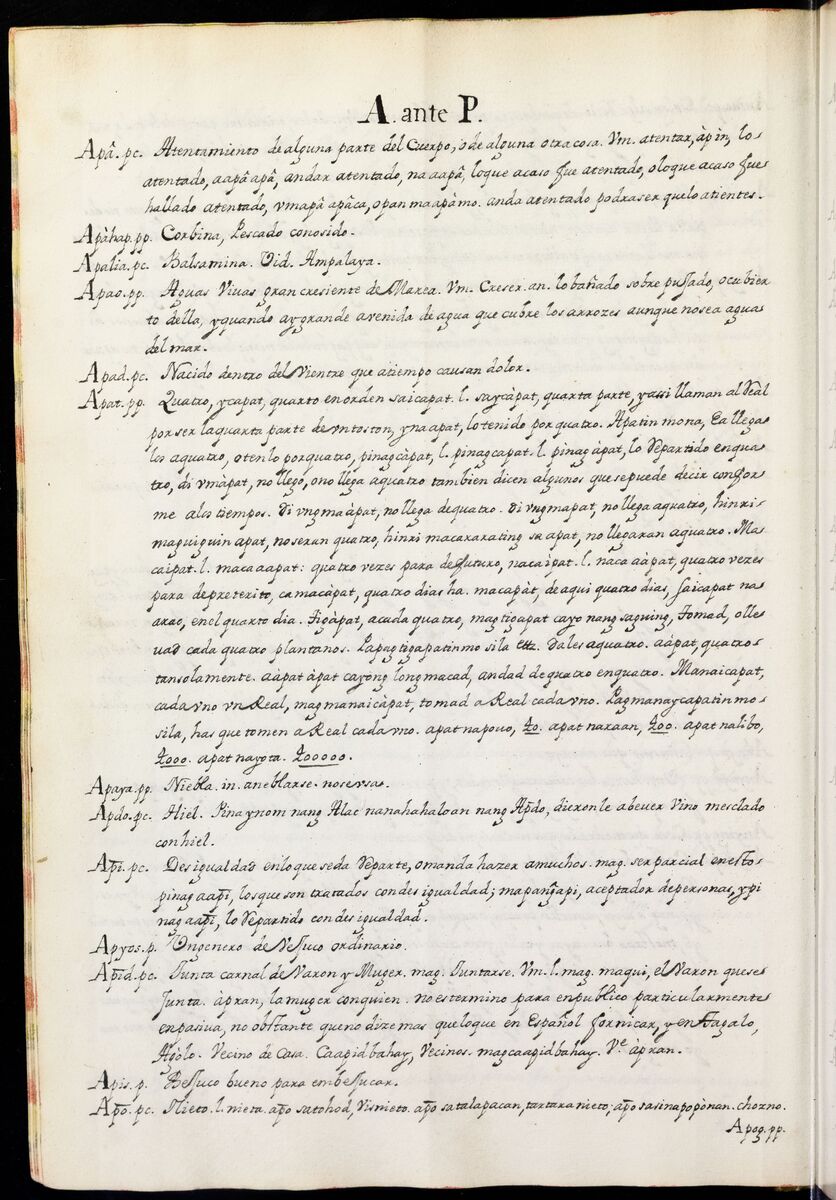 A. ante P.
Apâ. pc. Atentamiento de alguna parte del Cuerpo, ò de alguna otra cosa. Vm. atentar, àpin, lo
atentado, aapâ apâ, andar atentado, na aapâ, loque acaso fue atentado, oloque acaso fue
hallado atentado, vmapâ apâca, opan maapàmo. anda atentado podraser quelo atientes.
Apàhap. pp. Corbina, Pescado conosido.
Apalia. pc. Balsamina. Vid. Ampalaya.
Apao. pp. Aguas Vivas gran cresiente de Marea. Vm. Creser. an. lo bañado sobre pujado, ocubier
to della, yquando ay grande avenida de agua que cubre los arrozes aunque nosea agua
del mar.
Apad. pc. Nacido dentro del Vientre que atiempo causan dolor.
Apat. pp. Quatro, ycapat, quarto en orden saicapat. l. saycàpat, quarta parte, yassi llaman al Real
por ser la quarta parte de vn toston, yna apat, lo tenido por quatro. Apatin mona, Ea llega
los aquatro, otenlo por quatro, pinagcàpat, l. pinagcapat. l. pinag àpat, lo Repartido en qua
tro, di vmàpat, no llego, ono llega aquatro tambien dicen algunos que sepuede decir confor
me alos tiempos. Di vngmaàpat, no llega dequatro. Di vngmapat, no llega aquatro, hinri
maguiguin apat, no seran quatro, hinri macararating sa apat, no llegaran aquatro. Ma
caipat. l. maca aapat: quatro vezes para defuturo, nacaìpat. l. naca aàpat, quatro vezes
para depreterito, camacàpat, quatro dias ha. macapàt, de aqui quatro dias, saicapat na
arao, en el quarto dia. Tigàpat, acada quatro, magtigapat cayo nang saguing, Tomad, olle
uad cada quatro plantanos. Papagtigapatinmo sila ettz. Dales aquatro. aàpat, quatro
tansolamente. aàpat àpat cayong longmacad, andad de quatro enquatro. Manaicapat,
cada vno vn Real, magmanaicàpat, tomad a Real cada vno. Pagmanaycapatin mo
sila, has que tomen a Real cada vno. apat napouo, 40. apat naraan, 400. apat nalibo,
4000. apat nayota. 400000.
Apaya. pp. Niebla. in. aneblarse. no se vsa.
Apdo. pc. Hiel. Pinaynom nang Alac nanahahaloan nang Apdo, dieronle abeuer Vino mesclado
con hiel.
Api. pc. Desigualdad enloque seda Reparte, omanda hazer amuchos. mag. ser parcial en esto
pinag aapi, losque son tratados con desigualdad; mapangapi, aceptador depersonas, y pi
nag aapi, lo Repartido con desigualdad.
Apyos. p. Vngenero de Vejuco ordinario.
Apid. pc. Junta carnal de Varon y Muger. mag. Juntarse. Vm. l. mag. maqui, el Varon quese
Junta. àpran, la muger conquien. no es termino para enpublico particularmente
enpasiua, no obstante queno dize mas queloque en Español fornicar, y en Tagalo,
Agòlo. Vecino de Casa. Caapid bahay, Vecinos. magcaapid bahay. Ve. àpran.
Apis. p. Bejuco bueno para embejucar.
Apo. pc. Nieto. l. nieta. apo satohod, Visnieto. apo satalapacan, tartaranieto; apo sasinapopònan. chozno.
Apog. pp.